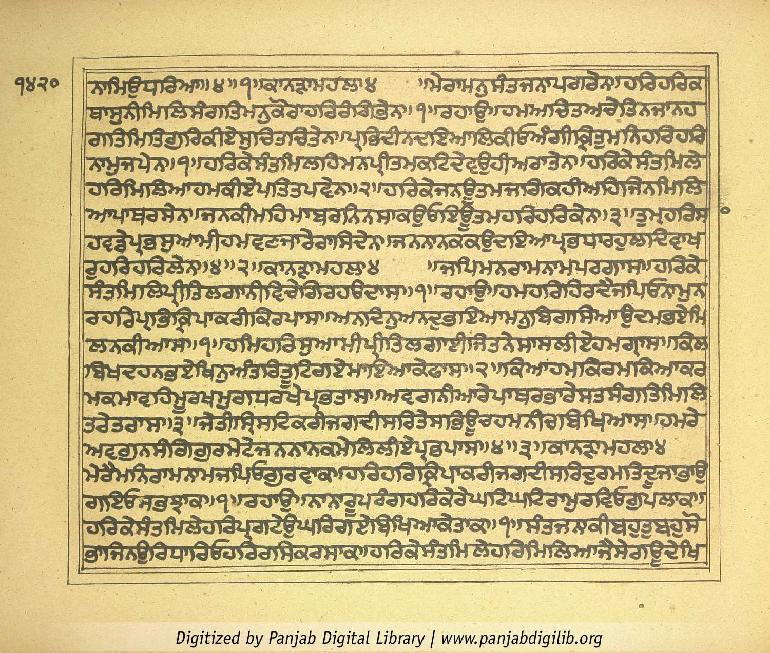 ੧੪੨੦
ਨਾਮਿਉਧਾਰਿਆ॥੪॥੧॥ਕਾਨੜਾਮਹਲਾ੪ ॥ਮੇਰਾਮਨੁਸੰਤਜਨਾਪਗਰੇਨ॥ਹਰਿਹਰਿਕ
ਥਾਸੁਨੀਮਿਲਿਸੰਗਤਿਮਨੁਕੋਰਾਹਰਿਰੰਗਿਭੇਨ॥੧॥ਰਹਾਉ॥ਹਮਅਚਿਤਅਚੇਤਨਜਾਨਹ
ਗਤਿਮਿਤਿਗੁਰਿਕੀਏਸੁਚਿਤਚਿਤੇਨ॥ਪ੍ਰਭਿਦੀਨਦਇਆਲਿਕੀਓਅੰਗੀਕ੍ਰਿਤੁਮਨਿਹਰਿਹਰਿ
ਨਾਮੁਜਪੇਨ॥੧॥ਹਰਿਕੇਸੰਤਮਿਲਹਿਮਨਪ੍ਰੀਤਮਕਟਿਦੇਵਉਹੀਅਰਾਤੇਨ॥ਹਰਿਕੇਸੰਤਮਿਲੇ
ਹਰਿਮਿਲਿਆਹਮਕੀਏਪਤਿਤਪਵੇਨ॥੨॥ਹਰਿਕੇਜਨਊਤਮਜਗਿਕਹੀਅਹਿਜਿਨਮਿਲਿ
ਆਪਾਥਰਸੇਨ॥ਜਨਕੀਮਹਿਮਾਬਰਨਿਨਸਾਕਉਓਇਊਤਮਹਰਿਹਰਿਕੇਨ॥੩॥ਤੁਮ੍ਹਹਰਿਸ
ਹਵਡੇਪ੍ਰਭਸੁਆਮੀਹਮਵਣਜਾਰੇਰਾਸਿਦੇਨ॥ਜਨਨਾਨਕਕਉਦਇਆਪ੍ਰਭਧਾਰਹੁਲਾਦਿਵਾਖ
ਰੁਹਰਿਹਰਿਲੇਨ॥੪॥੨॥ਕਾਨੜਾਮਹਲਾ੪ ॥ਜਪਿਮਨਰਾਮਨਾਮਪਰਗਾਸ॥ਹਰਿਕੇ
ਸੰਤਮਿਲਿਪ੍ਰੀਤਿਲਗਾਨੀਵਿਚੇਗਿਰਹਉਦਾਸ॥੧॥ਰਹਾਉ॥ਹਮਹਰਿਹਿਰਦੈਜਪਿਓਨਾਮੁਨ
ਰਹਰਿਪ੍ਰਭਿਕ੍ਰਿਪਾਕਰੀਕਿਰਪਾਸ॥ਅਨਦਿਨੁਅਨਦੁਭਇਆਮਨੁਬਿਗਸਿਆਉਦਮਭਏਮਿ
ਲਨਕੀਆਸ॥੧॥ਹਮਹਰਿਸੁਆਮੀਪ੍ਰੀਤਿਲਗਾਈਜਿਤਨੇਸਾਸਲੀਏਹਮਗ੍ਰਾਸ॥ਕਿਲ
ਬਿਖਦਹਨਭਏਖਿਨਅੰਤਰਿਤੂਟਿਗਏਮਾਇਆਕੇਫਾਸ॥੨॥ਕਿਆਹਮਕਿਰਮਕਿਆਕਰ
ਮਕਮਾਵਹਿਮੂਰਖਮੁਗਧਰਖੇਪ੍ਰਭਤਾਸ॥ਅਵਗਨੀਆਰੇਪਾਥਰਭਾਰੇਸਤਸੰਗਤਿਮਿਲਿ
ਤਰੇਤਰਾਸ॥੩॥ਜੇਤੀਸ੍ਰਿਸਟਿਕਰੀਜਗਦੀਸਰਿਤੇਸਭਿਊਚਹਮਨੀਚਬਿਖਿਆਸ॥ਹਮਰੇ
ਅਵਗੁਨਸੰਗਿਗੁਰਮੇਟੇਜਨਨਾਨਕਮੇਲਿਲੀਏਪ੍ਰਭਪਾਸ॥੪॥੩॥ਕਾਨੜਾਮਹਲਾ੪
ਮੇਰੈਮਨਿਰਾਮਨਾਮਜਪਿਓਗੁਰਵਾਕ॥ਹਰਿਹਰਿਕ੍ਰਿਪਾਕਰੀਜਗਦੀਸਰਿਦੁਰਮਤਿਦੂਜਾਭਾਉ
ਗਇਓਸਭਝਾਕ॥੧॥ਰਹਾਉ॥ਨਾਨਾਰੂਪਰੰਗਹਰਿਕੇਰੇਘਟਿਘਟਿਰਾਮੁਰਵਿਓਗੁਪਲਾਕ॥
ਹਰਿਕੇਸੰਤਮਿਲੇਹਰਿਪ੍ਰਗਟੇਉਘਰਿਗਏਬਿਖਿਆਕੇਤਾਕ॥੧॥ਸੰਤਜਨਾਕੀਬਹੁਤੁਬਹੁਸੋ
ਭਾਜਿਨਉਰਿਧਾਰਿਓਹਰਿਰਸਿਕਰਸਾਕ॥ਹਰਿਕੇਸੰਤਮਿਲੇਹਰਿਮਿਲਿਆਜੈਸੇਗਊਦੇਖਿ
Digitized by Panjab Digital Library | www.panjabdigilib.org